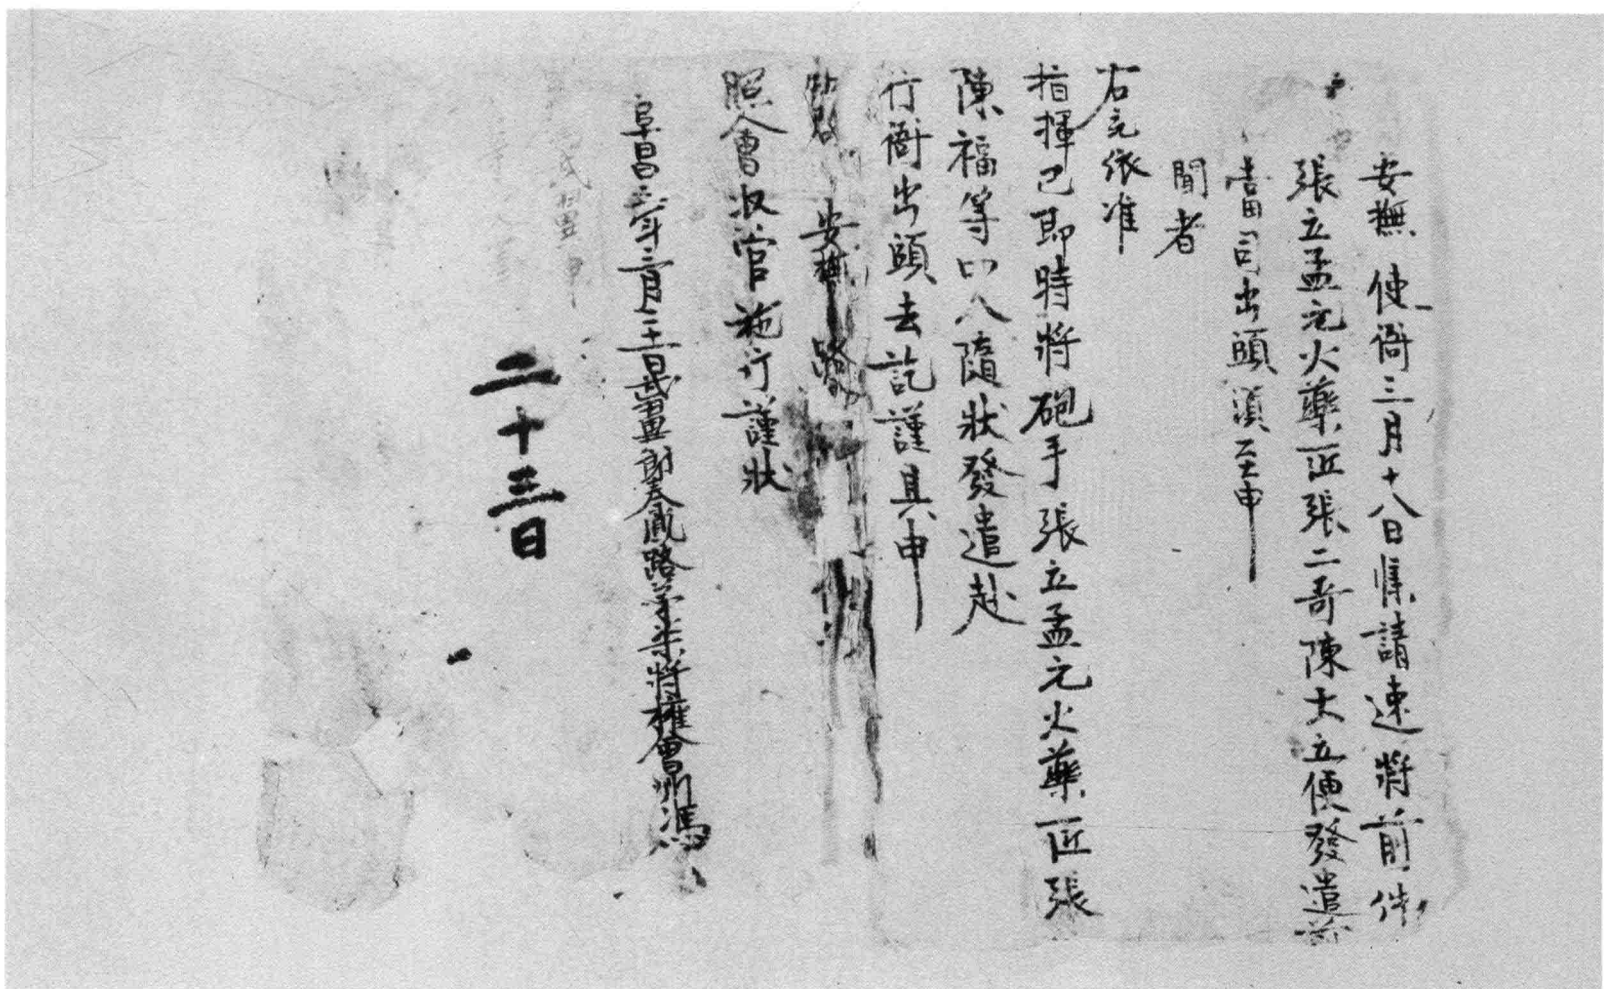 安撫使衙三月十八日牒請速將前件
張立孟元火藥匠張二哥陳大立便發遣前
當司出頭須至申
聞者
右元依准
指揮已即時將砲手張立孟元火藥匠張
陳福等四人隨狀發遣赴
行衙出頭去訖謹具申
安撫
照會收官施行謹狀
阜昌三月二十二日武翼郎秦鳳路第柒將權會州馮
二十三日